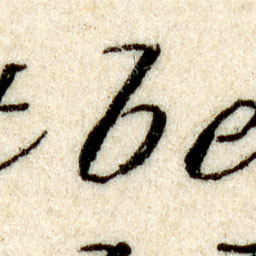 t be